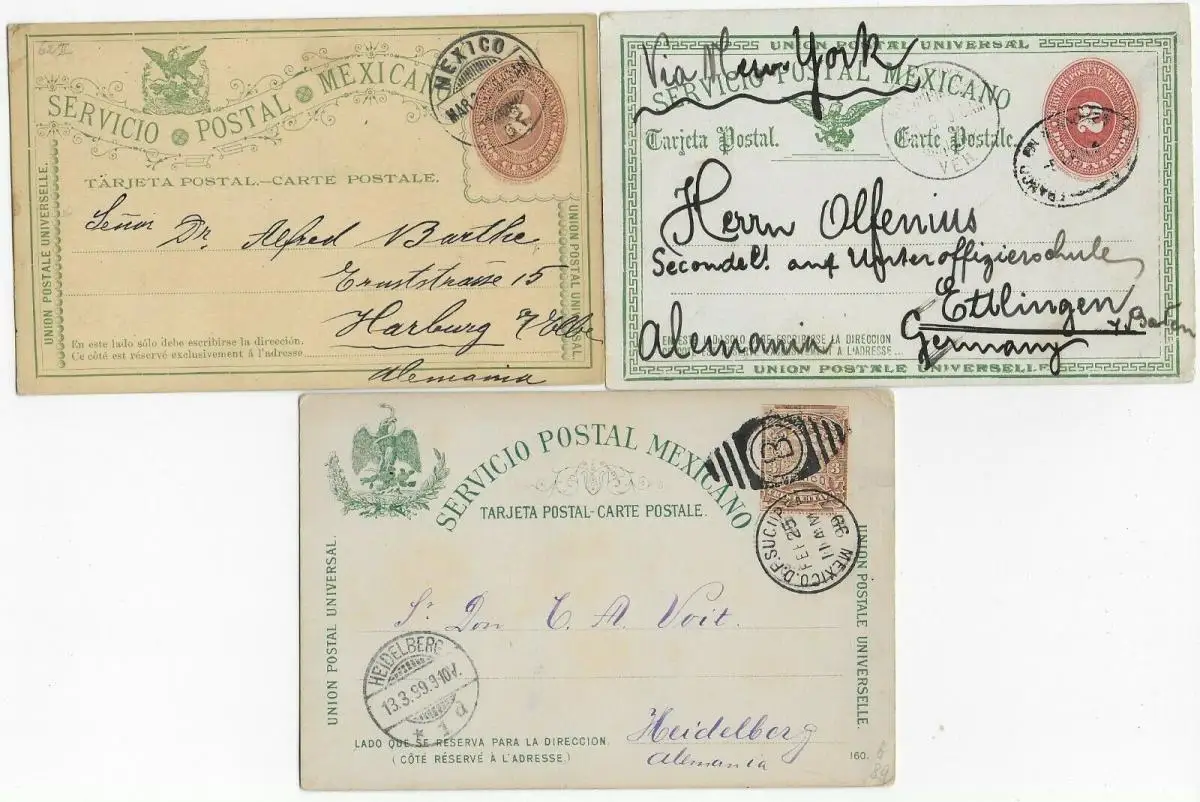 62 II
SERVICIO POSTAL MEXICANO
MEXICO
MAR
2
TARJETA POSTAL.—CARTE POSTALE.
UNION POSTALE UNIVERSELLE.
UNION POSTAL UNIVERSAL
Señor Dr. Alfred Barthe
Ernststrasse 15
Harburg a/Elbe
Alemania
En este lado sólo debe escribirse la dirección.
Ce côté est réservé exclusivement á l'adresse
UNION POSTAL UNIVERSAL
Via New-York
SERVICIO POSTAL MEXICANO
Tarjeta Postal. Carte Postale.
2
VER
FRANCO EN
Herrn Olfenius
Secondelt. auf Unteroffizierschule
Ettlingen
i. Baden
Alemania Germany
UNION POSTALE UNIVERSELLE
SERVICIO POSTAL MEXICANO
TARJETA POSTAL-CARTE POSTALE.
B
3 3
MEXICO. D.F.
FEB 25
11 AM
99
UNION POSTAL UNIVERSAL.
UNION POSTALE UNIVERSELLE
Sr. Don C. A. Voit.
HEIDELBERG
13.3.99.9-10V.
* 1 d
Heidelberg
Alemania
LADO QUE SE RESERVA PARA LA DIRECCION.
(CÔTE RÉSERVÉ A L'ADRESSE.)
160.
6
89